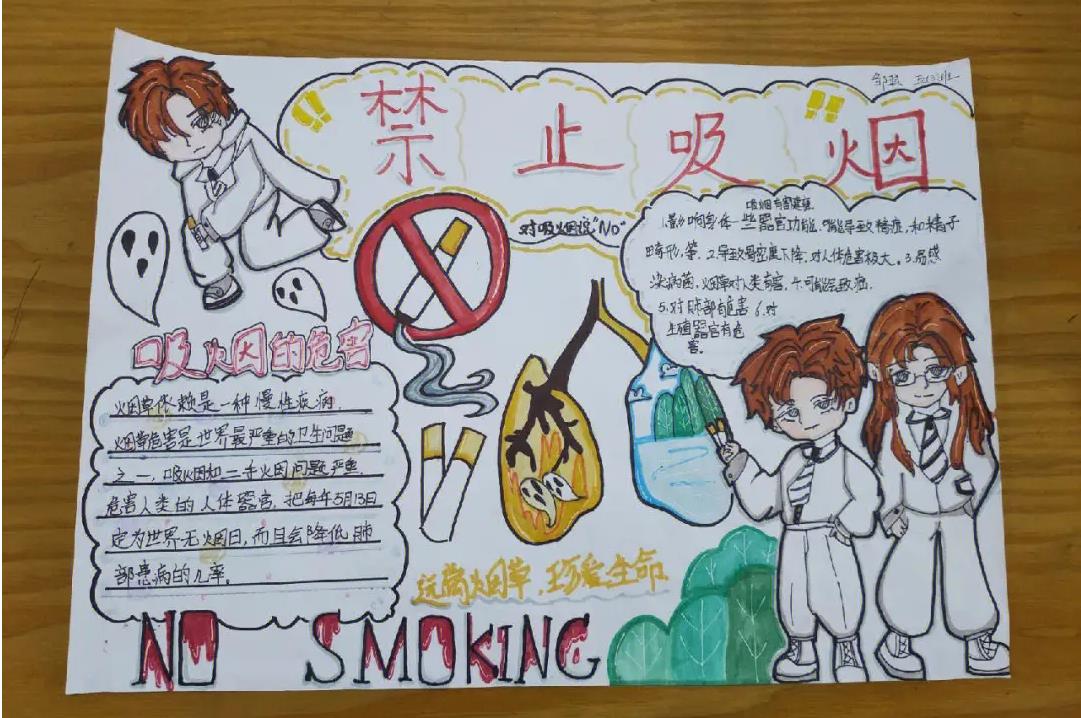 禁止吸烟
对吸烟说"No"
吸烟有害健康
1.影响身体一些器官功能.可能导致癌症,和精子
畸形,等.2.导致骨密度下降,对人体危害极大。3.易感
染病菌,烟草对人类有害,4.可能会致癌.
5.对肺部有危害6.对
生殖器官有危
害。
吸烟的危害
烟草依赖是一种慢性疾病.
烟草危害是世界最严重的卫生问题
之一,吸烟和二手火因问题严重,
危害人类的人体器官,把每年5月13日
定为世界无烟日,而且会降低肺
部患病的几率。
远离烟草,珍爱生命
NO SMOKING